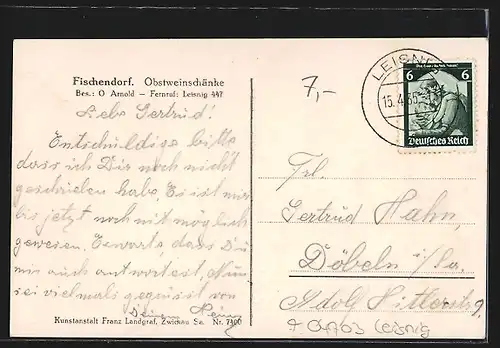 Fischendorf. Obstweinschänke
Bes.: O Arnold – Fernruf: Leisnig 447
Liebe Gertrud!
Entschuldige bitte
dass ich Dir noch nicht
geschrieben habe, Es ist mir
bis jetzt noch nicht möglich
gewesen. Erwarte, dass Du
mir auch antwortest, Nun
sei vielmals gegrüsst von
Deinem
Kunstanstalt Franz Landgraf, Zwickau Sa. Nr. 7400
7,-
LEISN
15.4.35
6 6
Deutsches Reich
Frl.
Gertrud Hahn,
Döbeln i/Sa.
Adolf Hitlerstr 9,
04703 Leisnig